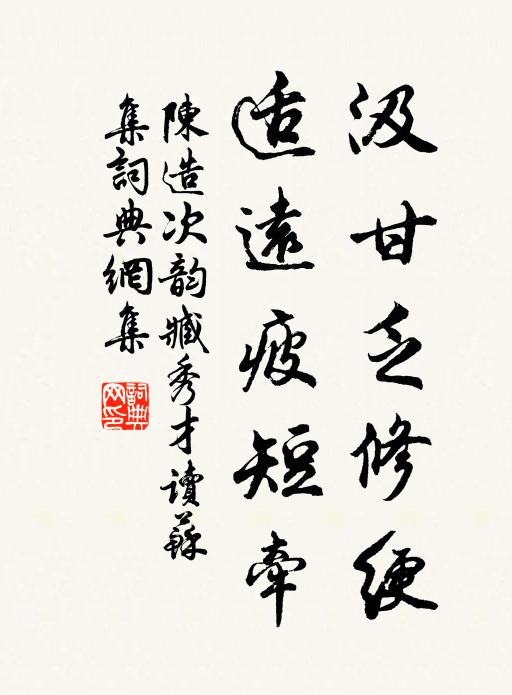 汲甘乏修绠
适遠疲短牽
陳造次韵臧秀才讀蘇
集詞典網集
詞典
网印